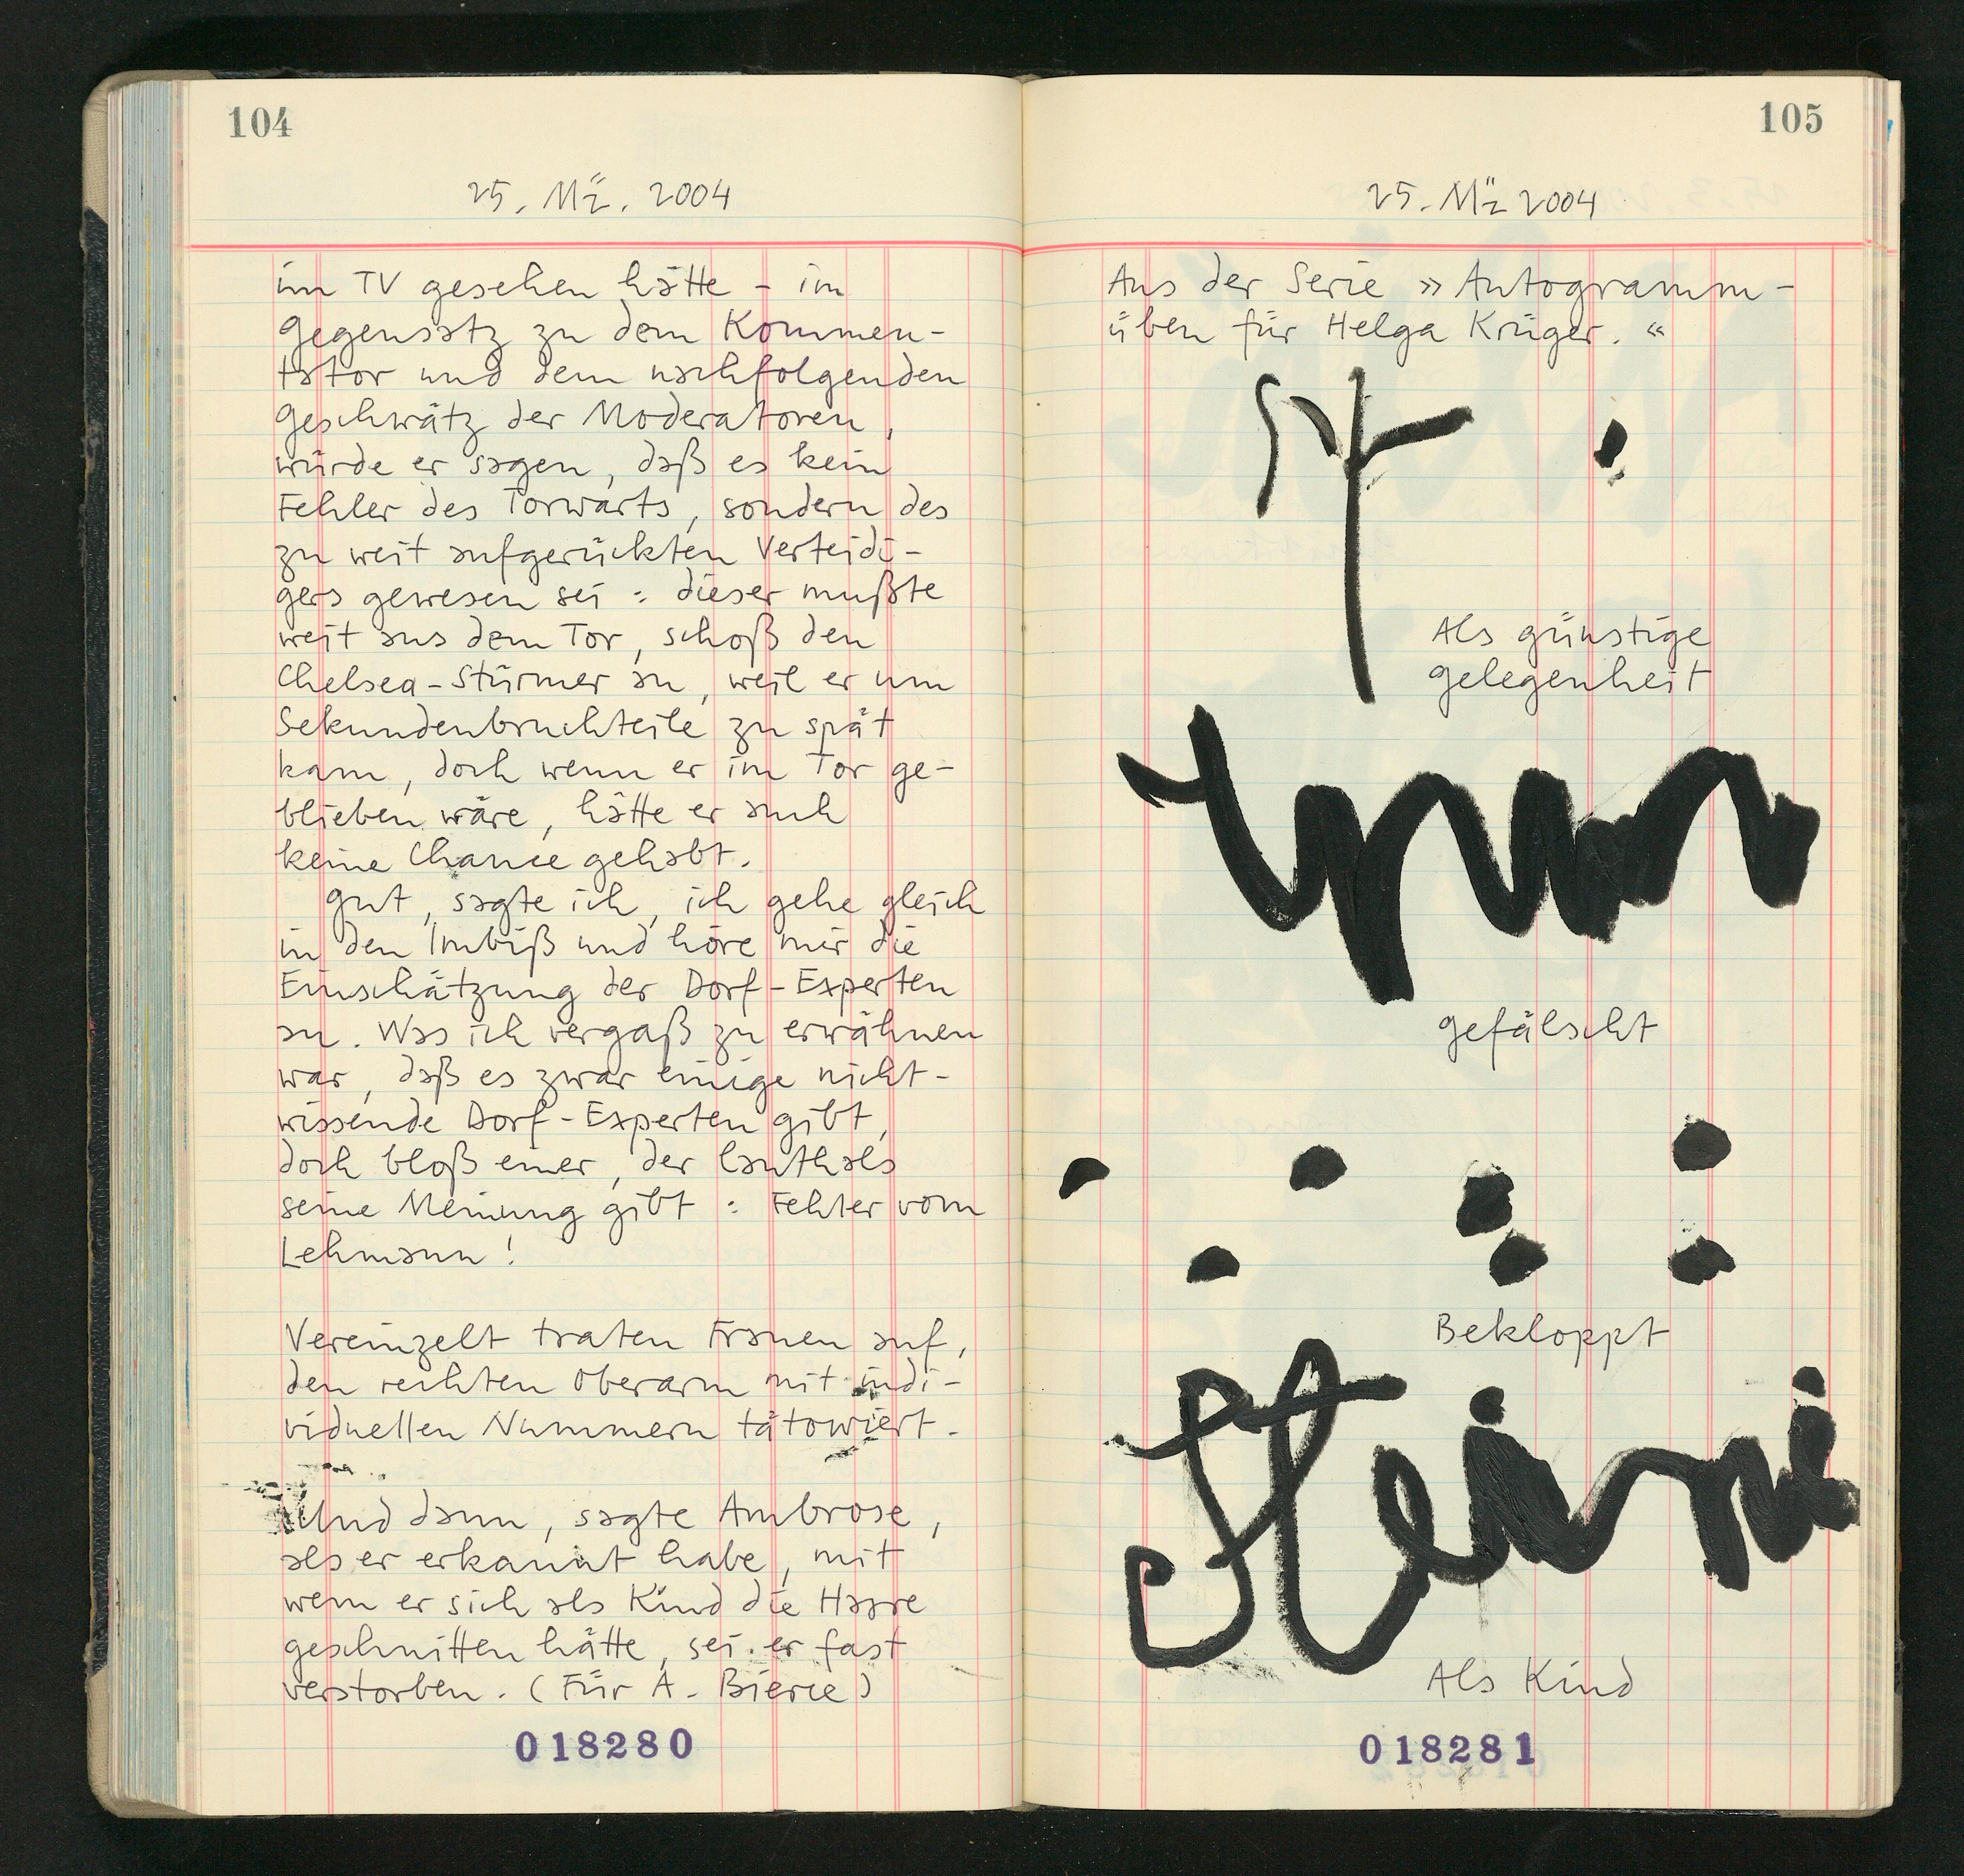 104
25. Mż. 2004
im TV gesehen hätte – im
Gegensatz zu dem Kommen-
tator und dem nachfolgenden
Geschwätz der Moderatoren,
würde er sagen, daß es kein
Fehler des Torwarts, sondern des
zu weit aufgerückten Verteidi-
gers gewesen sei : dieser mußte
weit aus dem Tor, schoß den
Chelsea-Stürmer an, weil er um
Sekundenbruchteile zu spät
kam, doch wenn er im Tor ge-
blieben wäre, hätte er auch
keine Chance gehabt.
Gut, sagte ich, ich gehe gleich
in den Imbiß und höre mir die
Einschätzung der Dorf-Experten
an. Was ich vergaß zu erwähnen
war, daß es zwar einige nicht-
wissende Dorf-Experten gibt,
doch bloß einer, der lauthals
seine Meinung gibt : Fehler vom
Lehmann!
Vereinzelt traten Frauen auf,
den rechten Oberarm mit indi-
viduellen Nummern tätowiert.
Und dann, sagte Ambrose,
als er erkannt habe, mit
wem er sich als Kind die Haare
geschnitten hätte, sei er fast
verstorben. (Für A. Bierce)
018280
105
25. Mż 2004
Aus der Serie »Autogramm-
üben für Helga Krüger.«
Als günstige
Gelegenheit
gefälscht
Bekloppt
Steini
Als Kind
018281